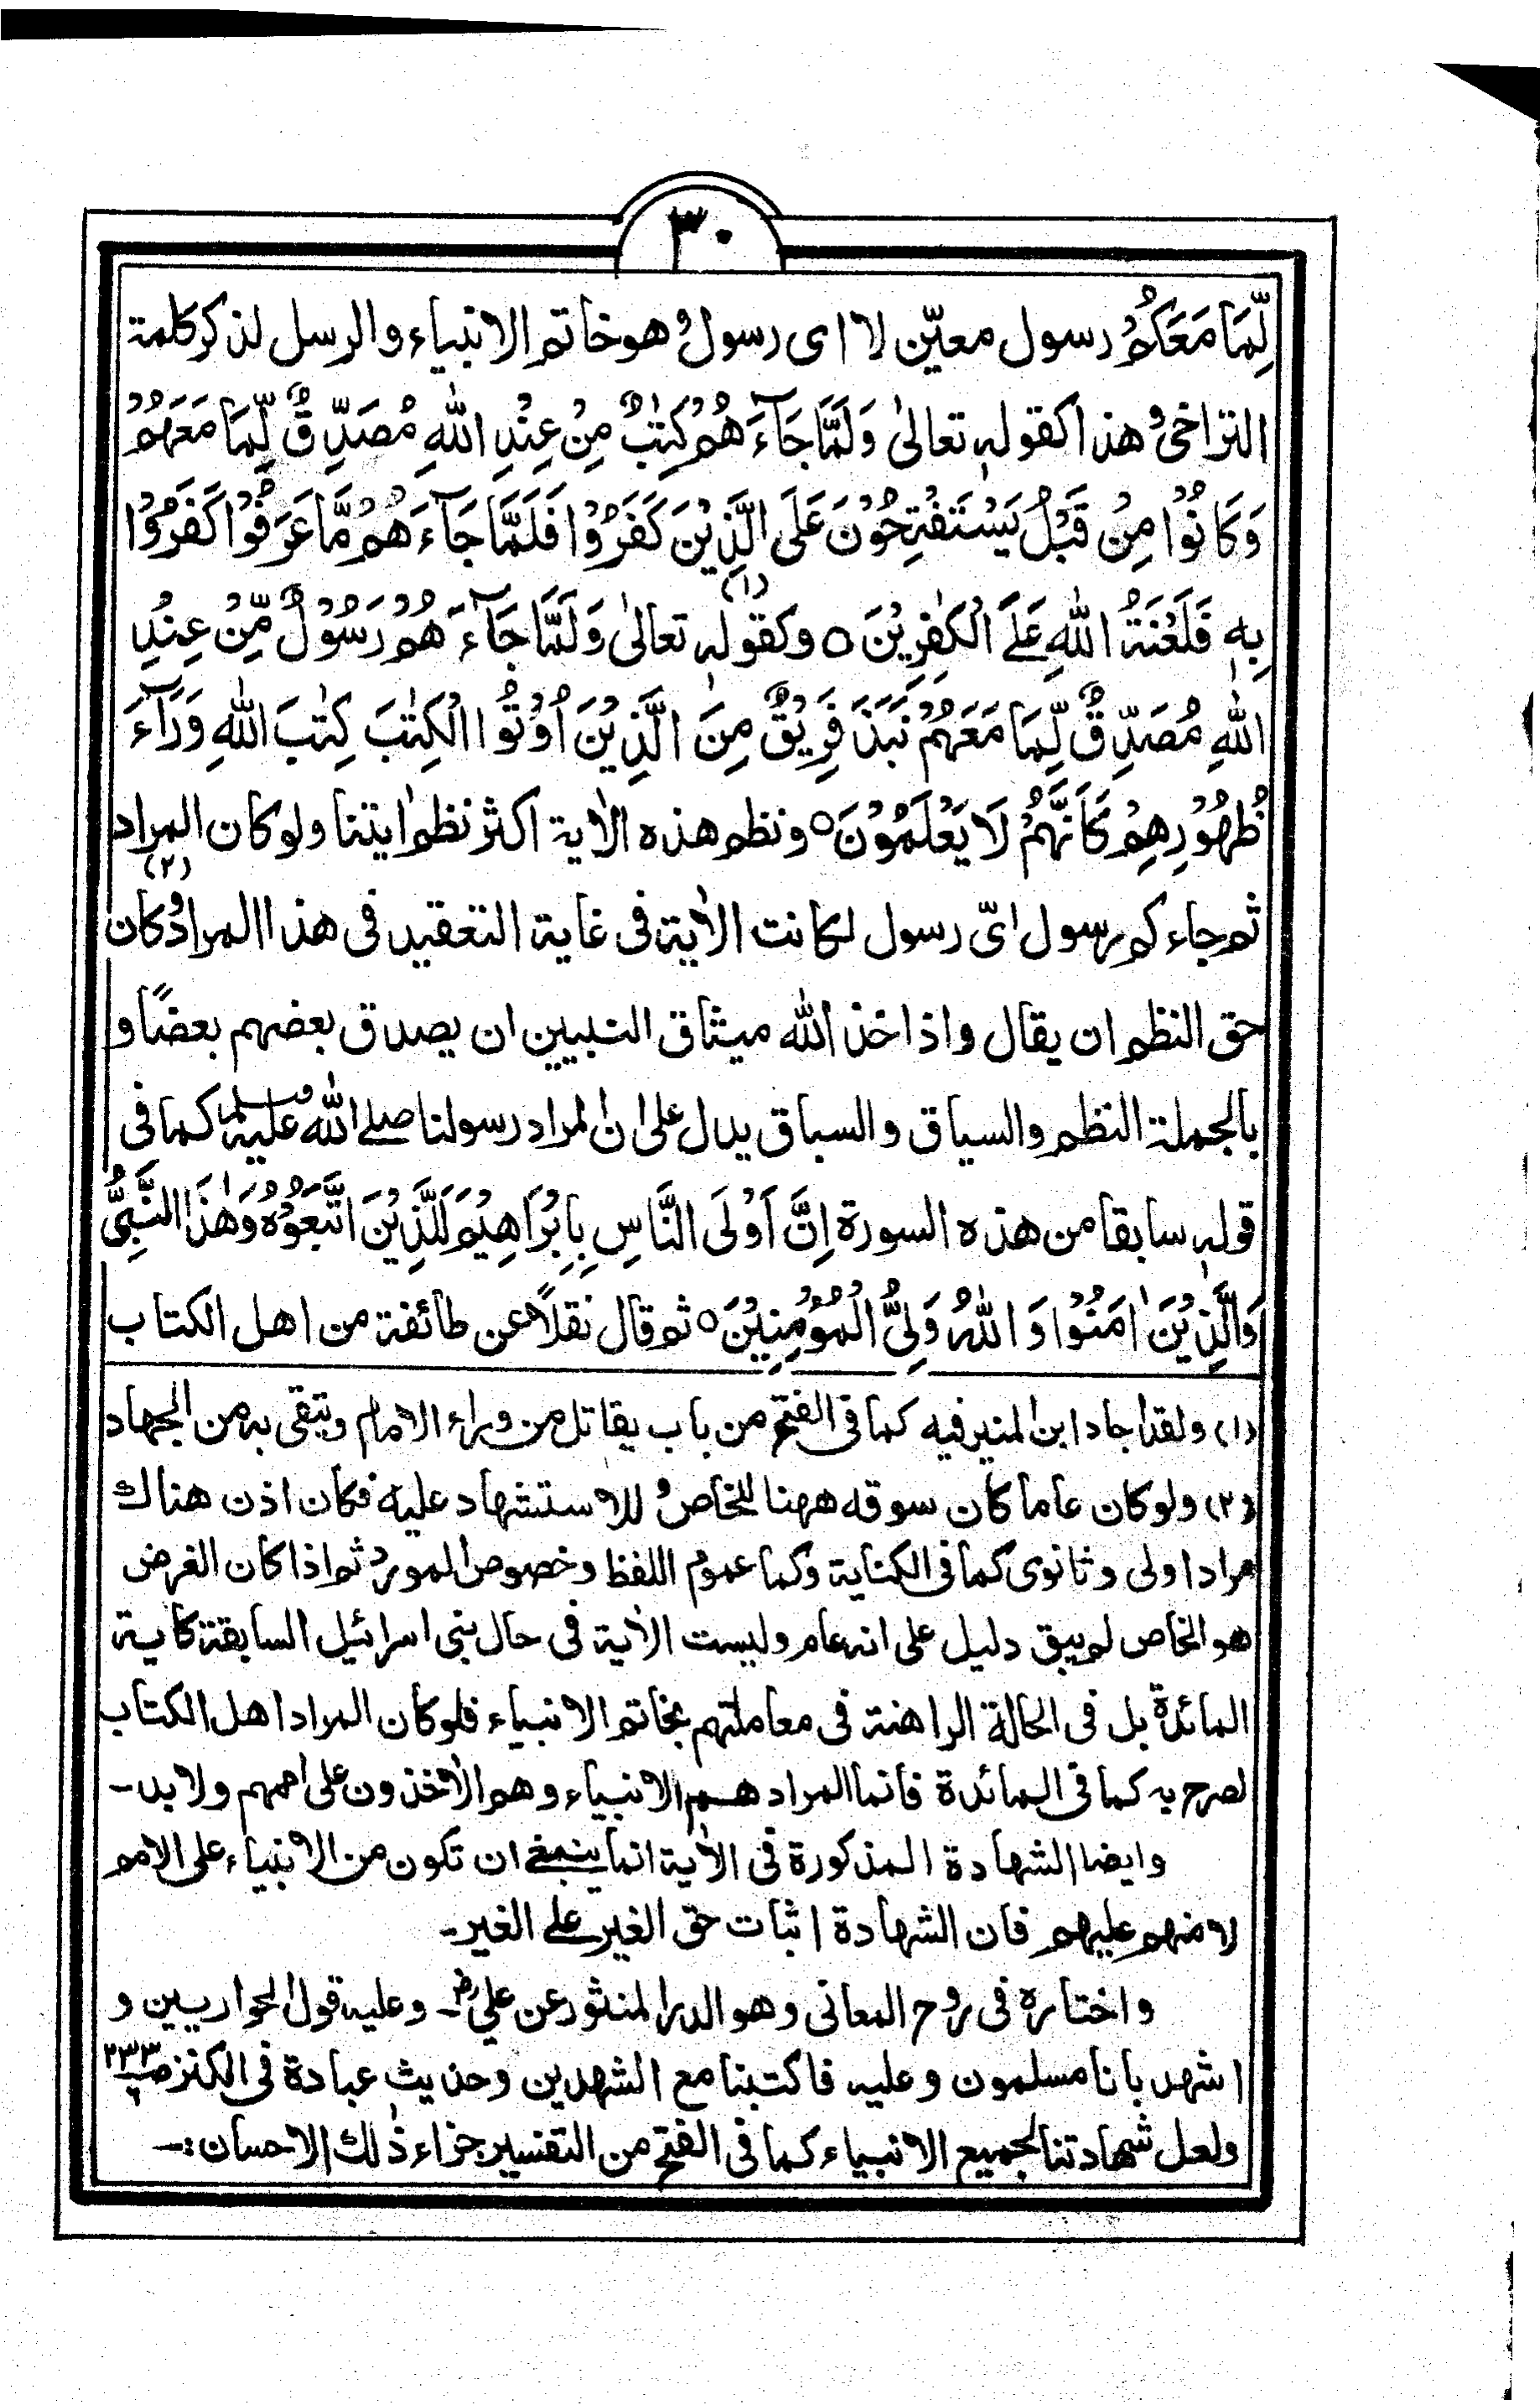 ٣٠
لِّمَا مَعَكُمْ رسول معيّن لا اى رسول و هو خاتم الانبياء والرسل لذكر كلمة
التراخى و هذا كقوله تعالىٰ وَلَمَّا جَآءَهُمْ كِتٰبٌ مِنْ عِنْدِ اللّٰهِ مُصَدِّقٌ لِّمَا مَعَهُمْ
وَكَانُوْا مِنْ قَبْلُ يَسْتَفْتِحُوْنَ عَلَى الَّذِيْنَ كَفَرُوْا فَلَمَّا جَآءَهُمْ مَّا عَرَفُوْا كَفَرُوْا
بِهٖ فَلَعْنَةُ اللّٰهِ عَلَى الْكٰفِرِيْنَ ○ (١) وكقوله تعالىٰ وَلَمَّا جَآءَهُمْ رَسُوْلٌ مِّنْ عِنْدِ
اللّٰهِ مُصَدِّقٌ لِّمَا مَعَهُمْ نَبَذَ فَرِيْقٌ مِنَ الَّذِيْنَ اُوْتُوا الْكِتٰبَ كِتٰبَ اللّٰهِ وَرَآءَ
ظُهُوْرِهِمْ كَاَنَّهُمْ لَا يَعْلَمُوْنَ ○ ونظم هذه الاٰية اكثر نظم اٰيتنا ولو كان المراد
ثم جاءكم رسول اىّ رسول لكانت الاٰية فى غاية التعقيد فى هذا المراد (٢) وكان
حق النظم ان يقال واذ اخذ اللّٰه ميثاق النبيين ان يصدق بعضهم بعضًا و
بالجملة النظم والسياق والسباق يدل على ان المراد رسولنا صلے اللّٰه عليه وسلم كما فى
قوله سابقا من هذه السورة اِنَّ اَوْلَى النَّاسِ بِاِبْرَاهِيْمَ لَلَّذِيْنَ اتَّبَعَوْهُ وَهٰذَا النَّبِىُّ
وَالَّذِيْنَ اٰمَنُوْا وَ اللّٰهُ وَلِىُّ الْمُؤْمِنِيْنَ ○ ثم قال نقلاً عن طائفة من اهل الكتاب
(١) ولقد اجاد ابن المنير فيه كما فى الفتح من باب يقاتل من وراء الامام ويتقى به من الجهاد
(٢) ولو كان عاما كان سوقه ههنا للخاص و للاستشهاد عليه فكان اذن هناك
مراد اولى و ثانوى كما فى الكناية وكما عموم اللفظ وخصوص المورد ثم اذا كان الغرض
هو الخاص لم يبق دليل على انه عام وليست الاٰية فى حال بنى اسرائيل السابقة كاٰية
المائدة بل فى الحالة الراهنة فى معاملتهم بخاتم الانبياء فلو كان المراد اهل الكتاب
لصرح به كما فى المائدة فانما المراد هم الانبياء وهم الاٰخذون على اممهم ولا بد۔
وايضا الشهادة المذكورة فى الاٰية انما ينبغے ان تكون من الانبياء على الامم
لا منهم عليهم فان الشهادة اثبات حق الغير علے الغير۔
واختاره فى روح المعانى وهو الدر المنثور عن علي رض۔ وعليه قول الحواريين و
اشهد بانا مسلمون وعليه فاكتبنا مع الشهدين وحديث عبادة فى الكنز صـ ٢٣٣
ولعل شهادتنا لجميع الانبياء كما فى الفتح من التفسير جزاء ذٰلك الاحسان:۔